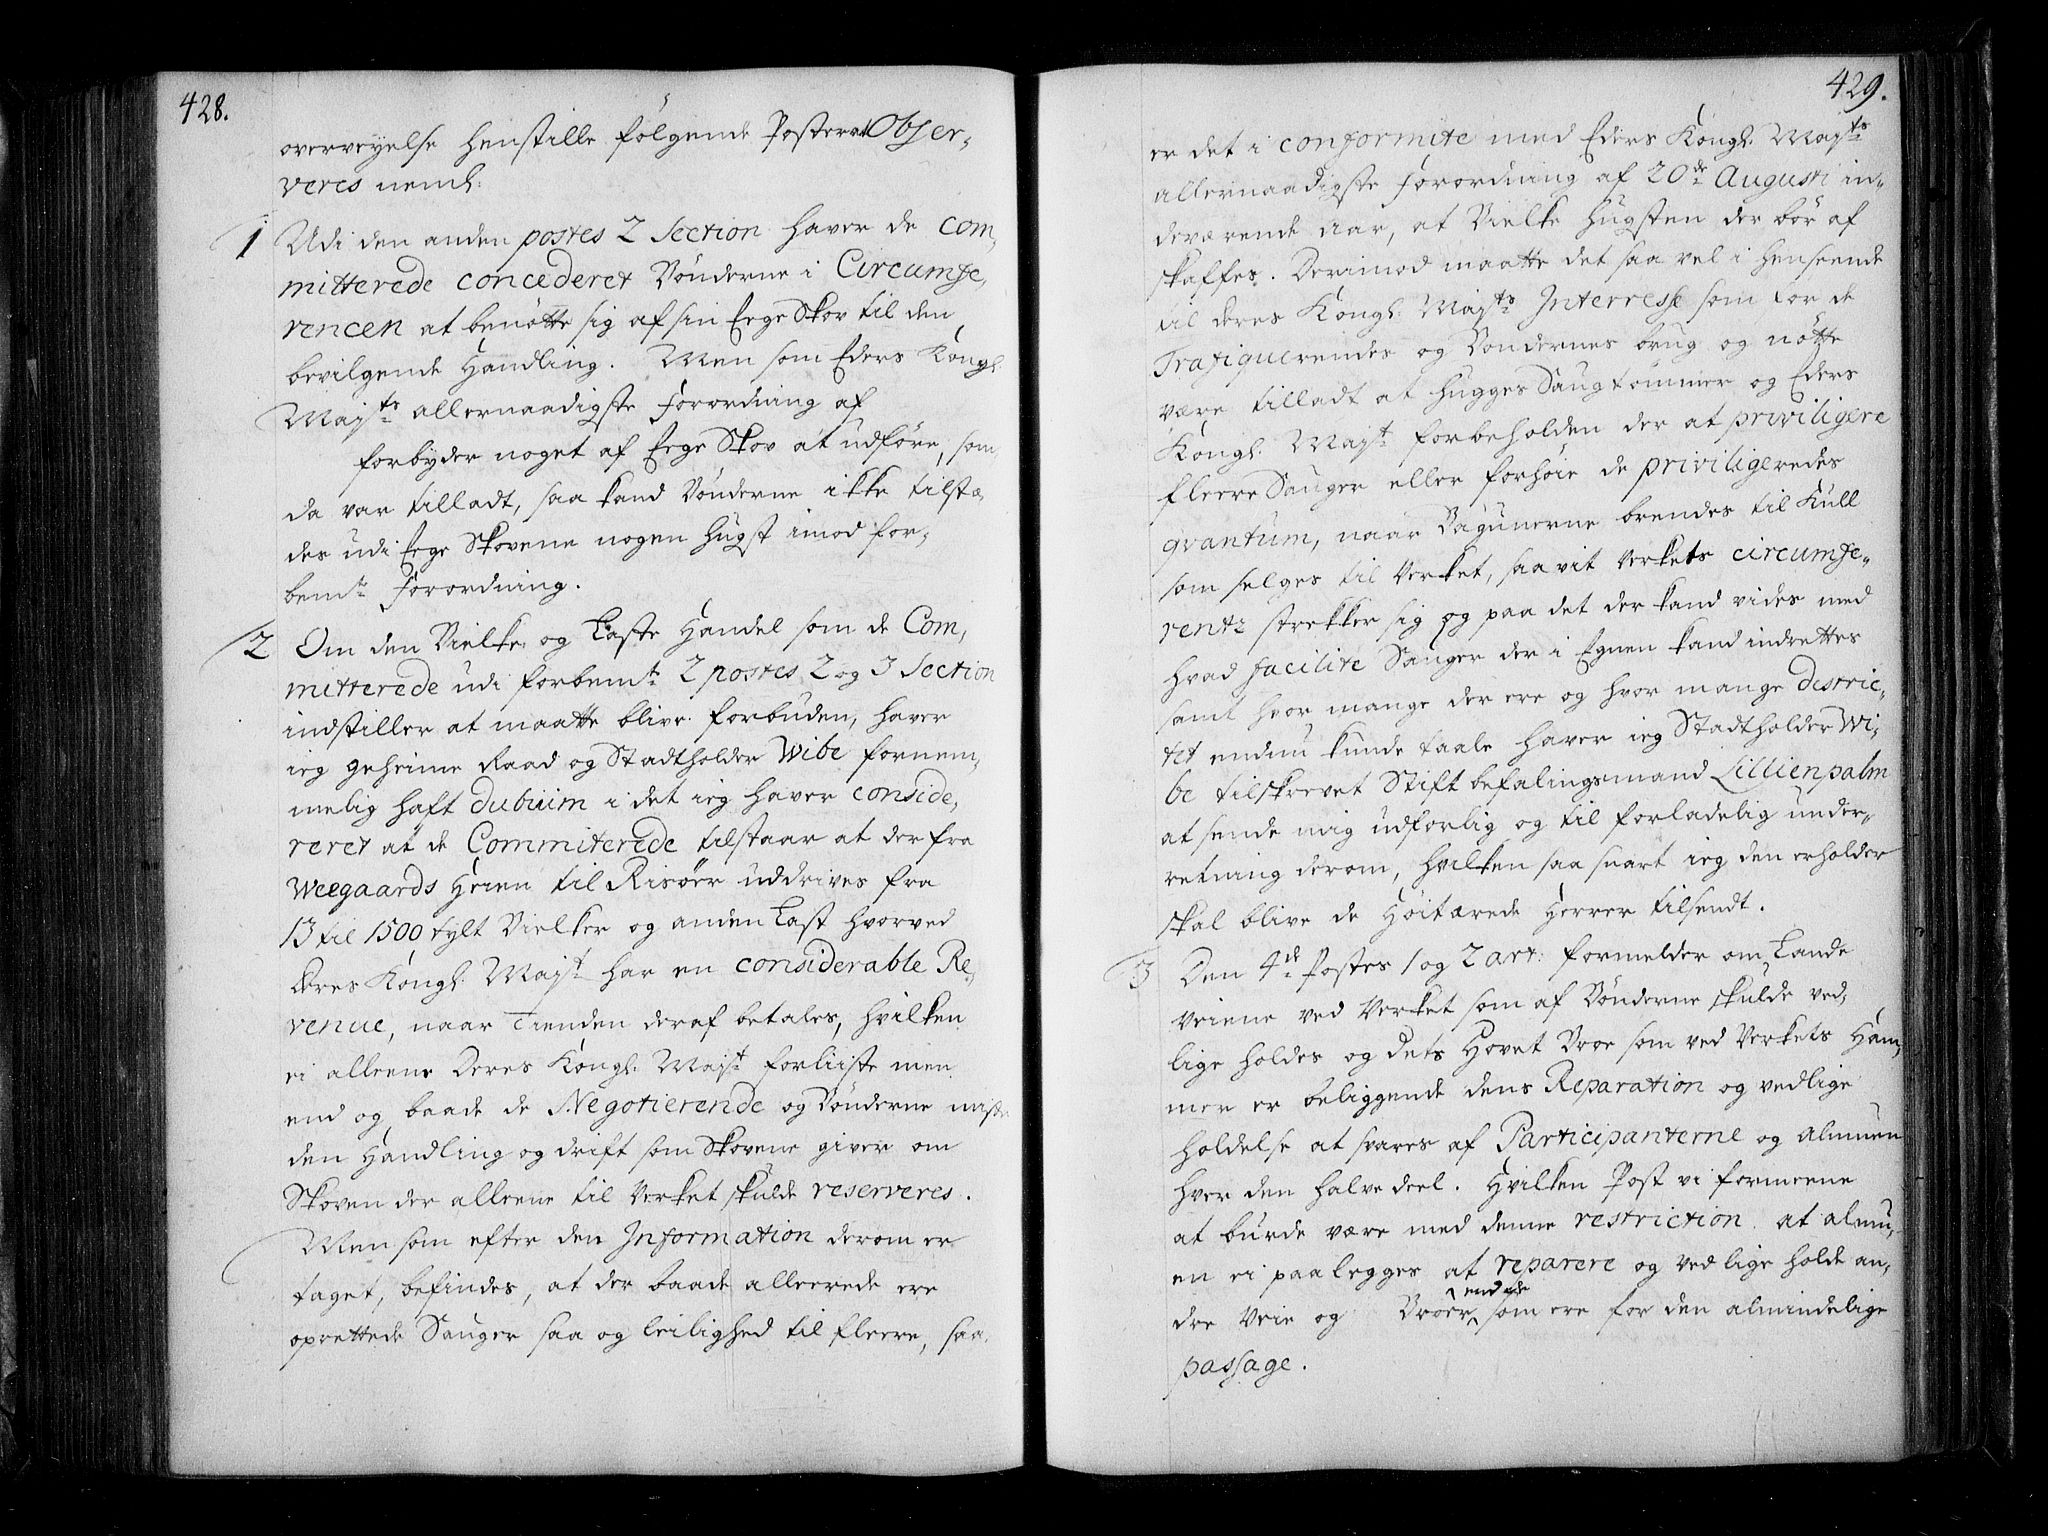 428.
overveyelse henstille følgende Poster at Obser-
veres neml:
1 Udi den anden postes 2 Section haver de Com-
mitterede concederet Bønderne i Circumfe-
rencen at benøtte sig af sin Eege Skov til den
bevilgende Handling. Men som Eders Kongl
Maj.ts allernaadigste Forordning af
forbyder noget af Eege Skov at udføre, som
da var tilladt, saa kand Bønderne ikke tilstæ-
des udi Eege Skovene nogen Hugst imod for-
bem.te Forordning.
2 Om den Bielke og Laste Handel som de Com-
mitterede udi forbem.te 2 postes 2 og 3 Section
indstiller at maatte blive forbuden, haver
ieg geheime Raad og Stadtholder Wibe fornem-
melig haft dubium i det ieg haver conside-
reret at de Commiterede tilstaar at der fra
Weegaards Heien til Risøer uddrives fra
13 til 1500 tylt Bielker og anden Last hvorved
Deres Kongl. Maj.t har en considerable Re-
venue, naar Tienden deraf betales, hvilken
ei alleene Deres Kongl. Maj.t forliiste men
end og baade de Negotierende og Bønderne miste
den Handling og drift som Skovene giver om
Skoven der alleene til Verket skulde reserveres.
Men som efter den Information derom er
taget, befindes, at der baade alleerede ere
oprettede Sauger saa og leilighed til fleere, saa
429.
er det i conformite med Eders Kongl. Maj.ts
allernaadigste Forordning af 20.de Augusti in-
deværende aar, at Bielke Hugsten der bør af
skaffes. Derimod maatte det saa vel i henseende
til deres Kongl. Maj.ts Interresse som for de
Trafiquerendes og Bøndernes brug og nøtte
være tilladt at hugges Saugtømmer og Eders
Kongl. Maj.t forbeholden der at priviligere
fleere Sauger eller forhøie de priviligeredes
qvantum, naar Bagunerne brendes til Kull
som selges til Verket, saavit Verkets circumfe-
rentz strekker sig og paa det der kand vides med
hvad facilite Sauger der i Egnen kand indrettes
samt hvor mange der ere og hvor mange destric-
tet endnu kunde taale haver ieg Stadtholder Wi-
be tilskrevet Stift befalingsmand Lillienpalm
at sende mig udførlig og til forladelig under-
retning derom, hvilken saa snart ieg den erholder
skal blive de Høitærede Herrer tilsendt.
3 Den 4.de Postes 1 og 2 art: formelder om Lande
Veiene ved Verket som af Bønderne skulde ved-
lige holdes og dets Hovet Broe som ved Verkets Ham-
mer er beliggende dens Reparation og vedlige
holdelse at svares af Participanterne og Almuen
hver den halve deel. Hvilken Post vi formeene
at burde være med denne restriction at Almu-
en ei paalegges at reparere og vedlige holde an-
dre Veie og Broer end de som ere for den almindelige
passage.